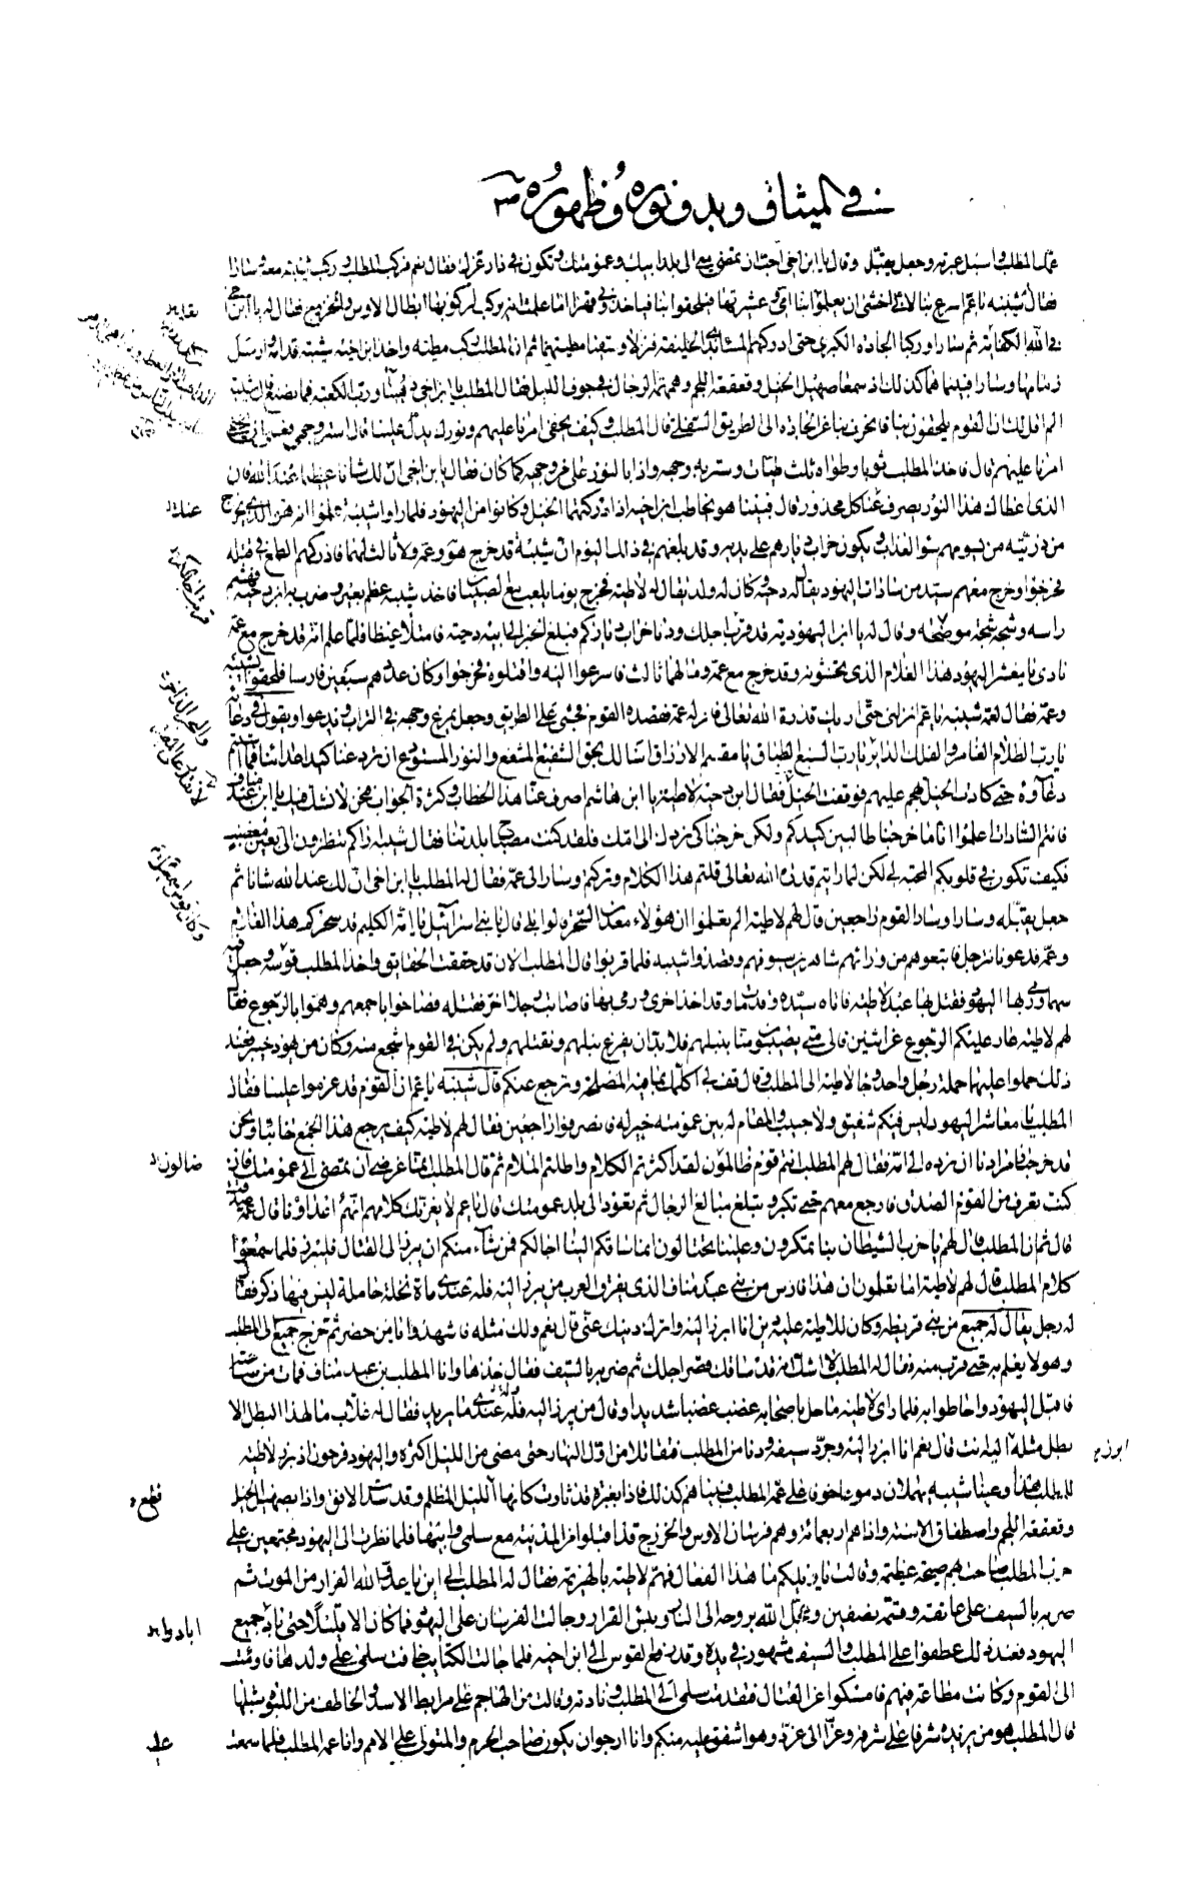 في الميثاق وبدو نوره وظهوره ص
عمه المطلب واسبل عبرته وجعل يقبله وقال يا ابن اخي احب ان تمضي معي الى بلد ابيك وعمومتك وتكون في دار عزك فقال نعم فركب المطلب وركب شيبته معه وسارا
فقال شيبته يا عم اسرع بنا لاني اخشى ان يعلموا بنا امي وعشيرتها فيلحقوا بنا فياخذوني قهرا اما علمت انه يركب لركوبها ابطال الاوس والخزرج فقال له يا ابن اخي
في الله الكفاية ثم سارا وركبا الجادة الكبرى حتى ادركهم المساء بذي الحليفة فنزلا وسقيا مطيتهما ثم ان المطلب ركب مطيته واخذ ابن اخيه شيبته قدامه وارسل
زمامها وسارا فبينما هما كذلك اذ سمعا صهيل الخيل وقعقعة اللجم وهمهمة الرجال في جوف الليل فقال المطلب يا ابن اخي دهينا ورب الكعبة فما نصنع قال شيبته
الم اقل لك ان القوم يلحقون بنا فانحرف بنا عن الجادة الى الطريق السفلى قال المطلب وكيف يخفى امرنا عليهم ونورك يدل علينا قال استر وجهي فعسى ان يخفى
امرنا عليهم قال فاخذ المطلب ثوبا وطواه ثلث طيات وستر به وجهه واذا بالنور على وجهه كما كان فقال يا ابن اخي ان لك شانا عظيما عند الله فان
الذي اعطاك هذا النور يصرف عنا كل محذور قال فبينما هو يخاطب ابن اخيه اذ ادركتهما الخيل وكانوا من اليهود فلما راوا شيبة علموا انه هو الذي يخرج
من ذريته من يسومهم سوء العذاب ويكون خراب ديارهم على يديه وقد بلغهم في ذلك اليوم ان شيبة قد خرج هو وعمه ولا ثالث لهما فادركهم الطمع في قتله
فخرجوا وخرج معهم سيد من سادات اليهود يقال له دحية وكان له ولد يقال له لاطية فخرج يوما يلعب مع الصبيان فاخذ شيبة عظم بعير وضرب به ابن دحية فهشم
راسه وشجه شجة موضحة وقال له يا ابن اليهودية قد قرب اجلك ودنا خراب دياركم فبلغ الخبر الى ابيه دحية فامتلأ غيظا فلما علم انه قد خرج مع عمه
نادى يا معشر اليهود هذا الغلام الذي تخشونه وقد خرج مع عمه وما لهما ثالث فاسرعوا اليه واقتلوه فخرجوا وكان عدتهم سبعين فارسا فلحقوا شيبة
وعمه فقال لعمه شيبته يا عم انزلني حتى اريك قدرة الله تعالى فانزله عمه فقصده القوم فجثى على الطريق وجعل يمرغ وجهه في التراب ويدعو ويقول في دعائه
يا رب الظلام الغامر والفلك الدائر يا رب السبع الطباق يا مقسم الارزاق اسالك بحق الشفيع المشفع والنور المستودع ان ترد عنا كيد اعدائنا فما استتم
دعاؤه حتى كادت الخيل تهجم عليهم فوقفت الخيل فقال ابن دحية لاطية يا ابن هاشم اصرف عنا هذا الخطاب وكثرة الجواب فنحن لا نشك فيك يا ابن عبد مناف
فانتم السادات اعلموا اننا ما خرجنا طالبين كيدكم ولكن خرجنا كي نردك الى امك فلقد كنت مصباح بلدتنا فقال شيبة اراكم تنظرون الي بعين مغضبة
فكيف تكون في قلوبكم المحبة لي لكن لما رايتم قدرة الله تعالى قلتم هذا الكلام وتركهم وسار الى عمه فقال له المطلب يا ابن اخي ان لك عند الله شانا ثم
جعل يقبله وسارا وسار القوم راجعين قال لهم لاطية الم تعلموا ان هؤلاء معدن السحرة قالوا بلى قال يا بني اسرائيل يا امة الكليم قد سحركم هذا الغلام
وعمه فدعونا ننزل فاتبعوهم من ورائهم شاهرين سيوفهم وقصدوا شيبه فلما قربوا قال المطلب الان قد حققت الحقايق واخذ المطلب قوسه وجعل فيه
سهما ورمى بها اليهود فقتل بها عبد لاطية فاتاه سيده وقد مات وقد اخذ اخرى ورمى بها فاصاب رجلا اخر فقتله فصاحوا باجمعهم وهموا بالرجوع فقال
لهم لاطية عار عليكم الرجوع عن اثنين فالى متى يصيبون منا بنبلهم فلا بد ان يفرغ نبلهم ونقتلهم ولم يكن في القوم اشجع منه وكان من يهود خيبر فعند
ذلك حملوا عليهما حملة رجل واحد وجاء لاطية الى المطلب وقال قف لي اكلمك بما فيه المصلحة ونرجع عنكم قال شيبته يا عم ان القوم قد عزموا علينا فقال
المطلب يا معاشر اليهود ليس فيكم شفيق ولا حبيب والمقام له بين عمومته خير له فانصرفوا راجعين فقال لهم لاطية كيف يرجع هذا الجمع خائبا ونحن
قد خرجنا ومرادنا ان نرده الى امه فقال لهم المطلب انتم قوم ظالمون لقد اكثرتم الكلام واطلتم الملام ثم قال المطلب انما غرضي ان تمضي الى عمومتك فان
كنت تعرف من القوم الصدق فارجع معهم حتى تكبر وتبلغ مبالغ الرجال ثم تعود الى بلد عمومتك قال يا عم لا يغرنك كلامهم انهم اعداؤنا قال عمه صدقت
قال ثم ان المطلب قال لهم يا حزب الشيطان بنا تمكرون وعلينا تحتالون انما ساقكم الينا اجالكم فمن شاء منكم ان يبرز الى القتال فليبرز فلما سمعوا
كلام المطلب قال لهم لاطية اما تعلمون ان هذا فارس من بني عبد مناف الذي يفرق العرب من يبرز اليه فله عندي مائة نخلة حاملة ليس فيها ذكر فقال
له رجل يقال له جميع من بني قريظة وكان للاطية عليه دين انا ابرز اليه واترك دينك عني قال نعم ولك مثله فاشهدوا يا من حضر ثم خرج جميع الى المطلب
وهو لا يعلم به حتى قرب منه فقال له المطلب لا اشك انه قد ساقك قصر اجلك ثم ضربه بالسيف فقال خذها وانا المطلب بن عبد مناف فمات من ساعته
فاقبل اليهود واحاطوا به فلما راى لاطية ما حل باصحابه غضب غضبا شديدا وقال من يبرز اليه فله عندي ما يريد فقال له غلاب ما لهذا البطل الا
بطل مثله ابرز اليه انت قال نعم انا ابرز اليه وجرد سيفه ودنا من المطلب فتقاتلا من اول النهار حتى مضى من الليل اكثره واليهود فرحون اذ برز لاطية
للمطلب هذا وعينا شيبه تهملان دموعا خوفا على عمه المطلب فبينا هم كذلك فاذا بغبرة قد ثارت كانها الليل المظلم وقد سدت الافق واذا بصهيل الخيل
وقعقعة اللجم واصطفاق الاسنة واذا هم اربعمائة وهم فرسان الاوس والخزرج قد اقبلوا من المدينة مع سلمى وابيها فلما نظرت الى اليهود مجتمعين على
حرب المطلب صاحت بهم صيحة عظيمة وقالت يا ويلكم ما هذا الفعال فهم لاطية بالهزيمة فقال له المطلب الى اين يا عدو الله الفرار من الموت ثم
ضربه بالسيف على عاتقه وقسمه نصفين وعجل الله بروحه الى النار وبئس القرار وجالت الفرسان على اليهود فما كان الا قليلا حتى اباد جميع
اليهود فعند ذلك عطفوا على المطلب والسيف مشهور في يده وقد دفع القوس الى ابن اخيه فلما جالت الكتائب خافت سلمى على ولدها فاومت
الى القوم وكانت مطاعة فيهم فامسكوا عن القتال فتقدمت سلمى الى المطلب ونادته وقالت من الهاجم على مرابط الاسد والخاطف من اللبوة شبلها
قال المطلب هو من يزيده شرفا على شرفه وعزا الى عزه وهو اشفق عليه منكم وانا ارجوان يكون صاحب الحرم والمتولي على الامم وانا عمه المطلب فلما سمعت
عنك
ضالون
ابرز
قطع
ابادوا
على